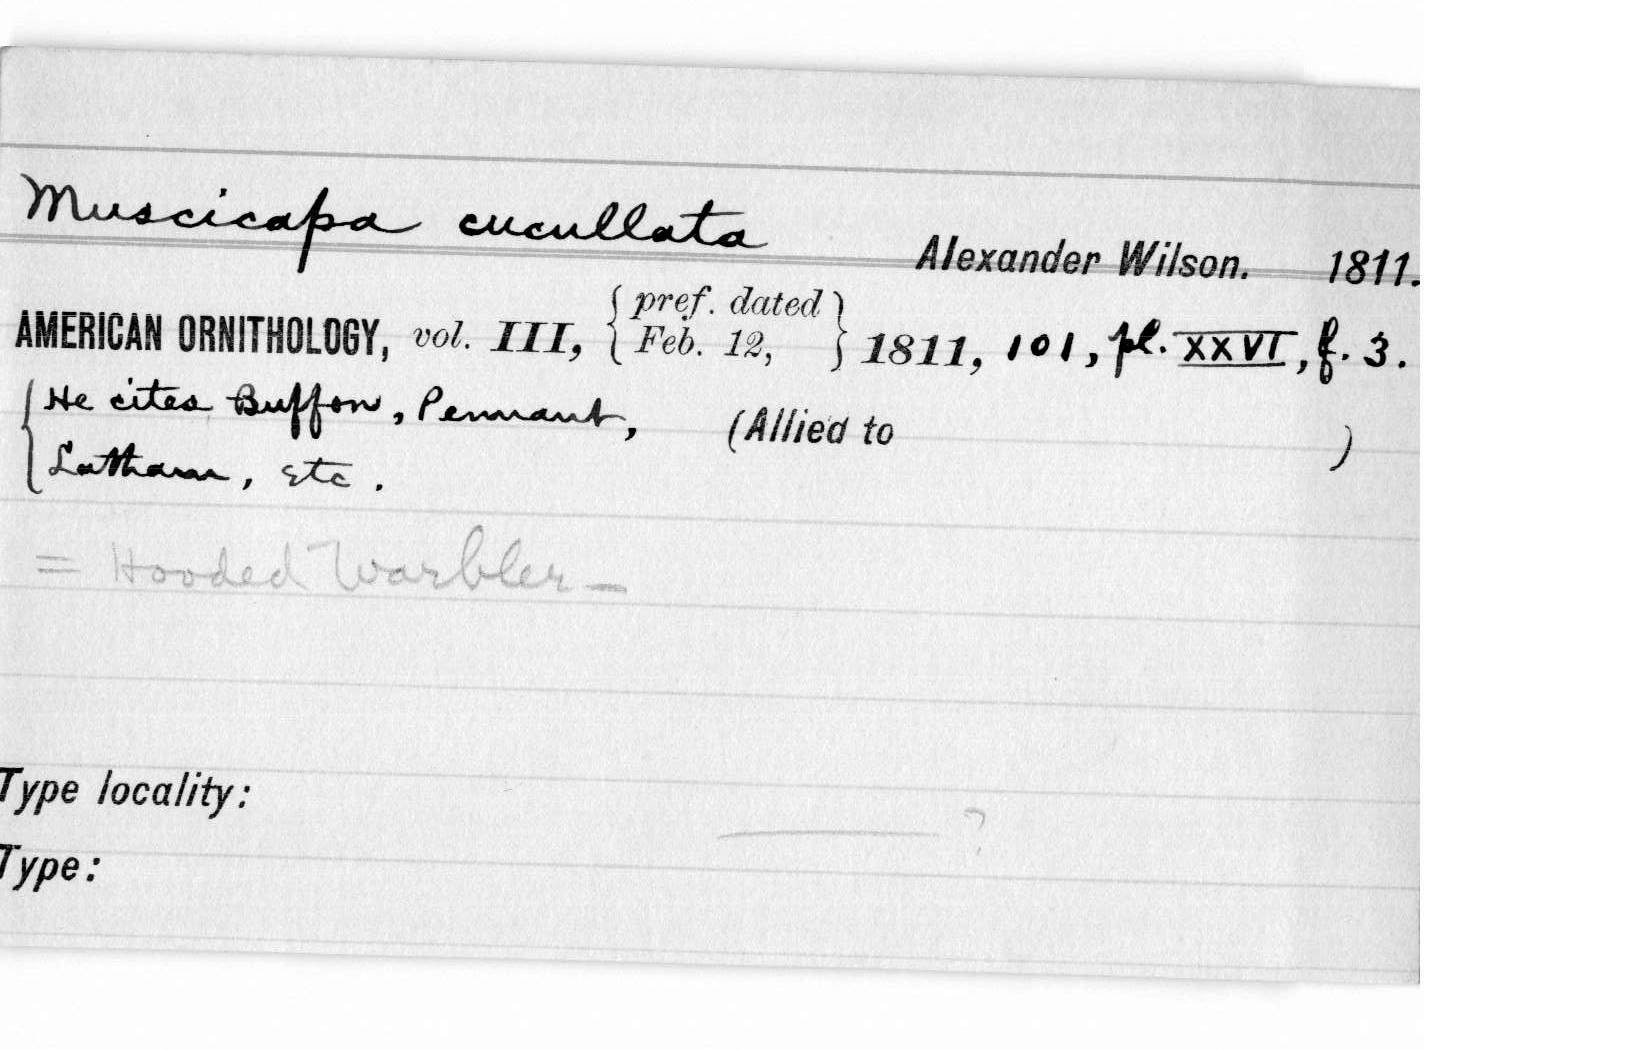 Muscicapa cucullata Alexander Wilson. 1811.
AMERICAN ORNITHOLOGY, vol. III, { pref. dated Feb. 12, } 1811, 101, pl. XXVI, f. 3.
{ He cites Buffon, Pennant, (Allied to )
Latham, etc.
= Hooded Warbler —
Type locality:
——— ?
Type: